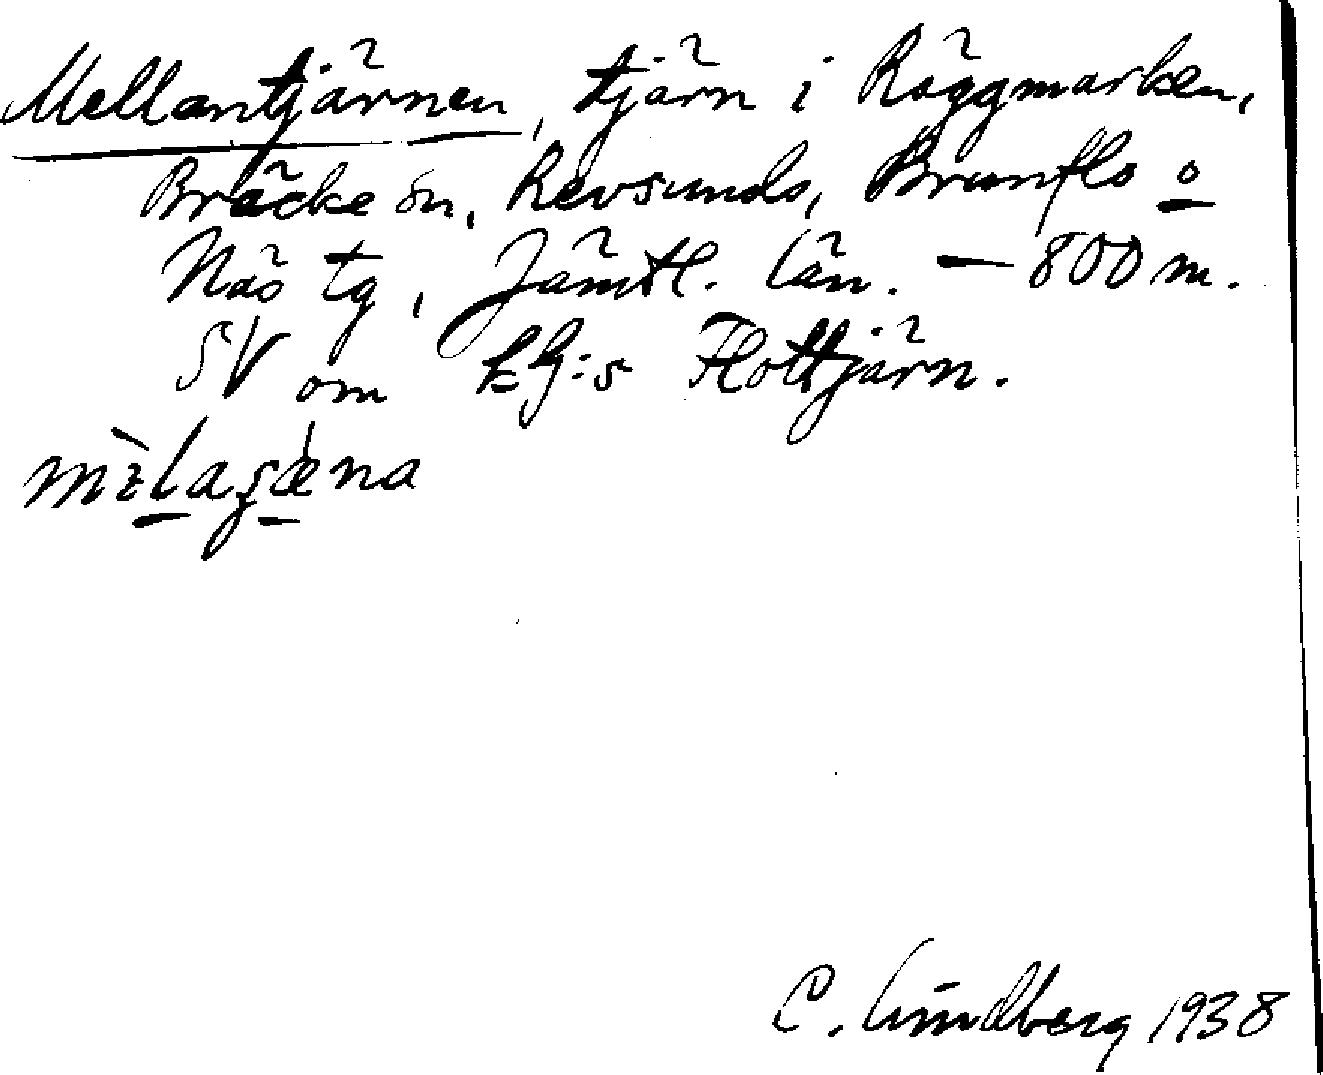 Mellantjärnen, tjärn i Räggmarken,
Bräcke sn, Revsunds, Brunflo o
Näs tg, Jämtl. län. – 800 m.
SV om Flottjärn.
C. Lindberg 1938